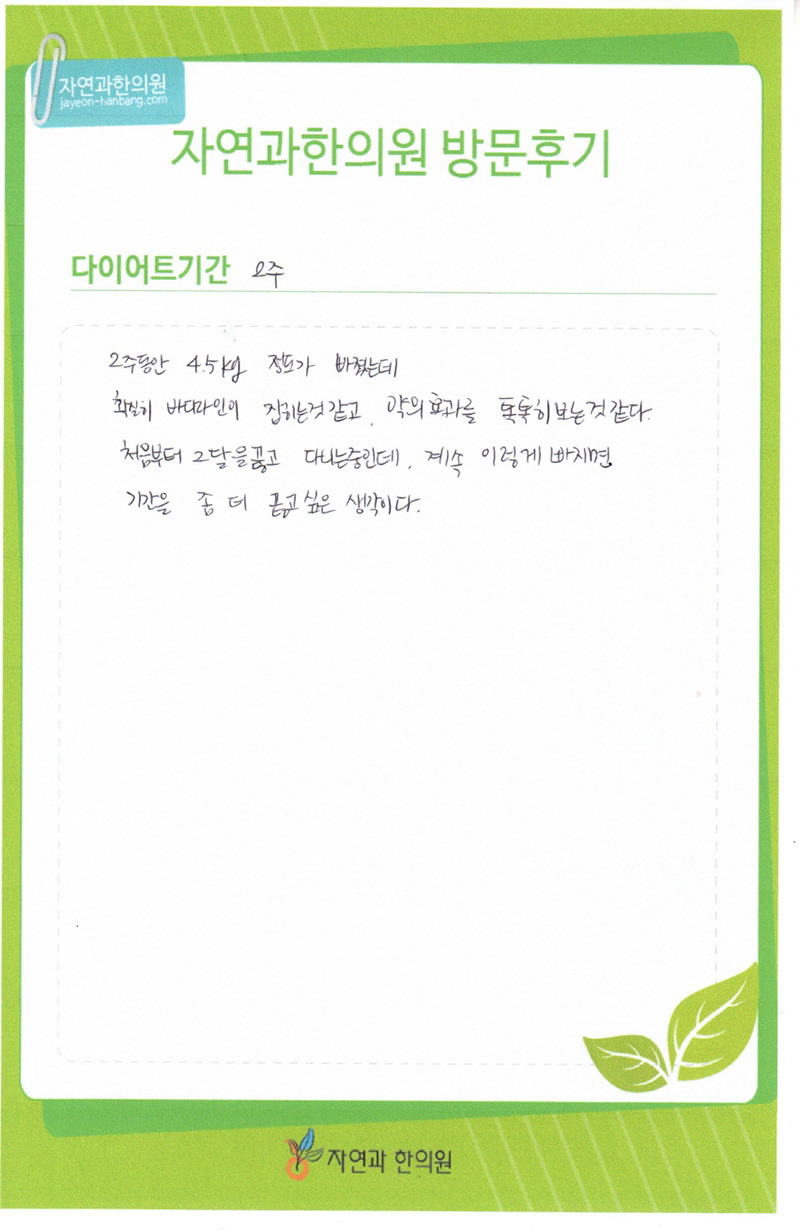 자연과한의원
jayeon-hanbang.com
자연과한의원 방문후기
다이어트기간 2주
2주동안 4.5kg 정도가 빠졌는데
확실히 바디라인이 잡히는것 같고, 약의 효과를 톡톡히 보는것 같다.
처음부터 2달을 끊고 다니는중인데, 계속 이렇게 빠지면
기간을 좀 더 끊고 싶은 생각이다.
자연과 한의원